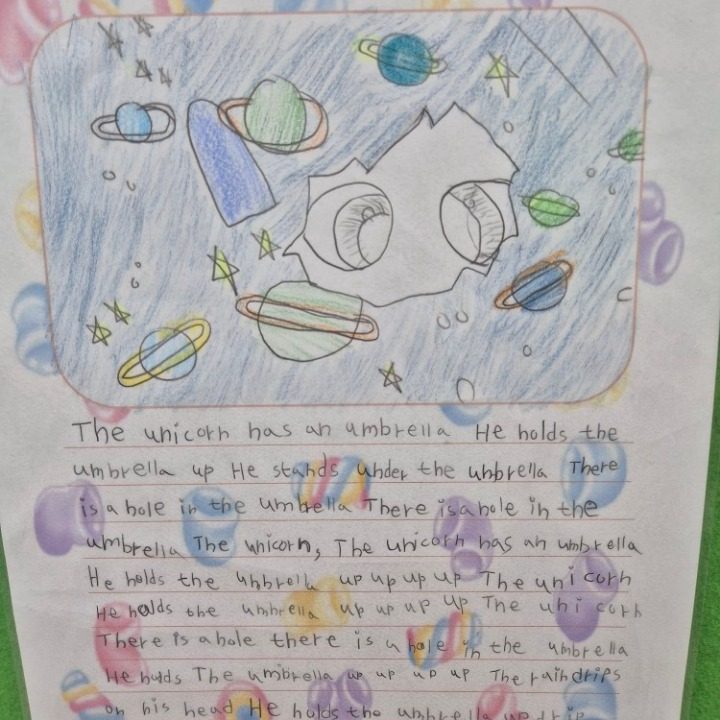 The unicorn has an umbrella He holds the
umbrella up He stands under the uhbrella There
is a hole in the umbrella There is a hole in the
umbrella The unicorn, The unicorn has an umbrella
He holds the uhbrella up up up up The unicorn
He holds the umbrella up up up up The unicorn
There is a hole there is a hole in the umbrella
He holds The umbrella up up up up The rain drips
on his head He holds the umbrella up drip